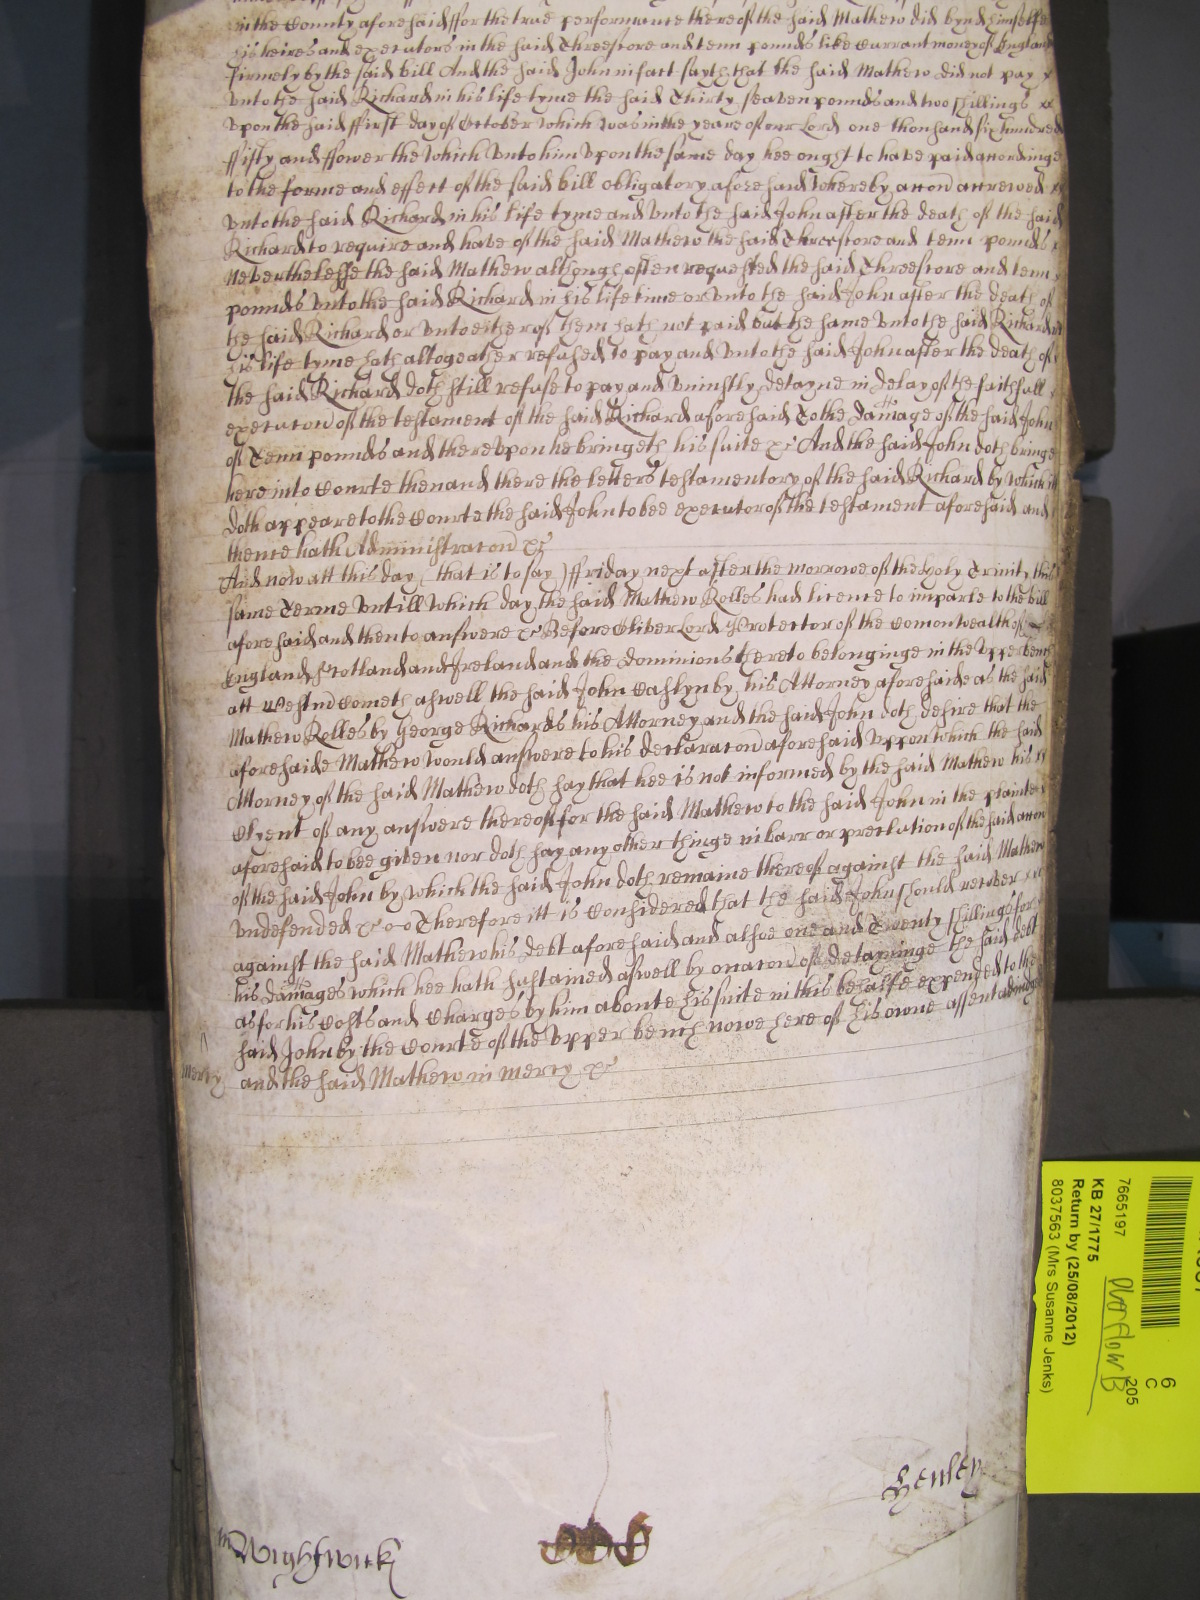 in the County aforesaid ffor the true performance thereof the said Mathew did bynd himselfe
his heires and executors in the said Threescore and tenn pounds like Currant money of England
firmely by the said bill And the said John in fact sayth that the said Mathew did not pay x
unto the said Richard in his life tyme the said Thirty seaven pounds and two shillings xx
Upon the said ffirst day of October which was in the yeare of our Lord one thousand six hundred
ffifty and ffower the which unto him upon the same day hee ought to have paid accordinge
to the forme and effect of the said bill obligatory aforesaid whereby accon accrewed xx
unto the said Richard in his life tyme and unto the said John after the death of the said
Richard to require and have of the said Mathew the said Threescore and tenn pounds x
Neverthelesse the said Mathew although often requested the said Threescore and tenn x
pounds unto the said Richard in his life time or unto the said John after the death of
the said Richard or unto either of them hath not paid but the same unto the said Richard in
his life tyme hath altogeather refused to pay and unto the said John after the death of
the said Richard doth still refuse to pay and uniustly detayne in delay of the faithfull x
execucon of the testament of the said Richard aforesaid To the Damage of the said John
of Tenn pounds and thereupon he bringeth his suite &c And the said John doth bringe
here into Courte then and there the letters testamentory of the said Richard by which itt
doth appeare to the Courte the said John to bee executor of the testament aforesaid and
thence hath Administracon &c
And now att this day (that is to say) ffriday next after the morrowe of the Holy Trinity this
same Terme Untill which day the said Mathew Rolles had licence to imparle to the bill
aforesaid and then to answere &c Before Oliver Lord Protector of the Comonwealth of
England Scotland and Ireland and the Dominions thereto belonginge in the Upper bench
att Westm Cometh aswell the said John Cashyn by his Attorney aforesaide as the said
Mathew Rolles by George Richards his Attorney and the said John doth desire that the
aforesaide Mathew would answere to his declaracon aforesaid Uppon which the said
Attorney of the said Mathew doth say that hee is not informed by the said Mathew his xx
Clyent of any answere thereof for the said Mathew to the said John in the plainte
aforesaid to bee given nor doth say any other thinge in barr or preclusion of the said accon
of the said John by which the said John doth remaine thereof against the said Mathew
undefended &c Therefore itt is Considered that the said John should recover xx
against the said Mathew his debt aforesaid and alsoe one and Twenty shillings for
his Damages which hee hath sustained aswell by occacon of detayninge the said debt
as for his Costs and Charges by him aboute his suite in this behalfe expended to the
said John by the Courte of the Upper bench nowe here of his owne assent adiudged
and the said Mathew in mercy &c
Mercy
Henley
Wightwick
7665197
KB 27/1775
Return by (25/08/2012)
8037563 (Mrs Susanne Jenks)
Overflow B
6
C
205